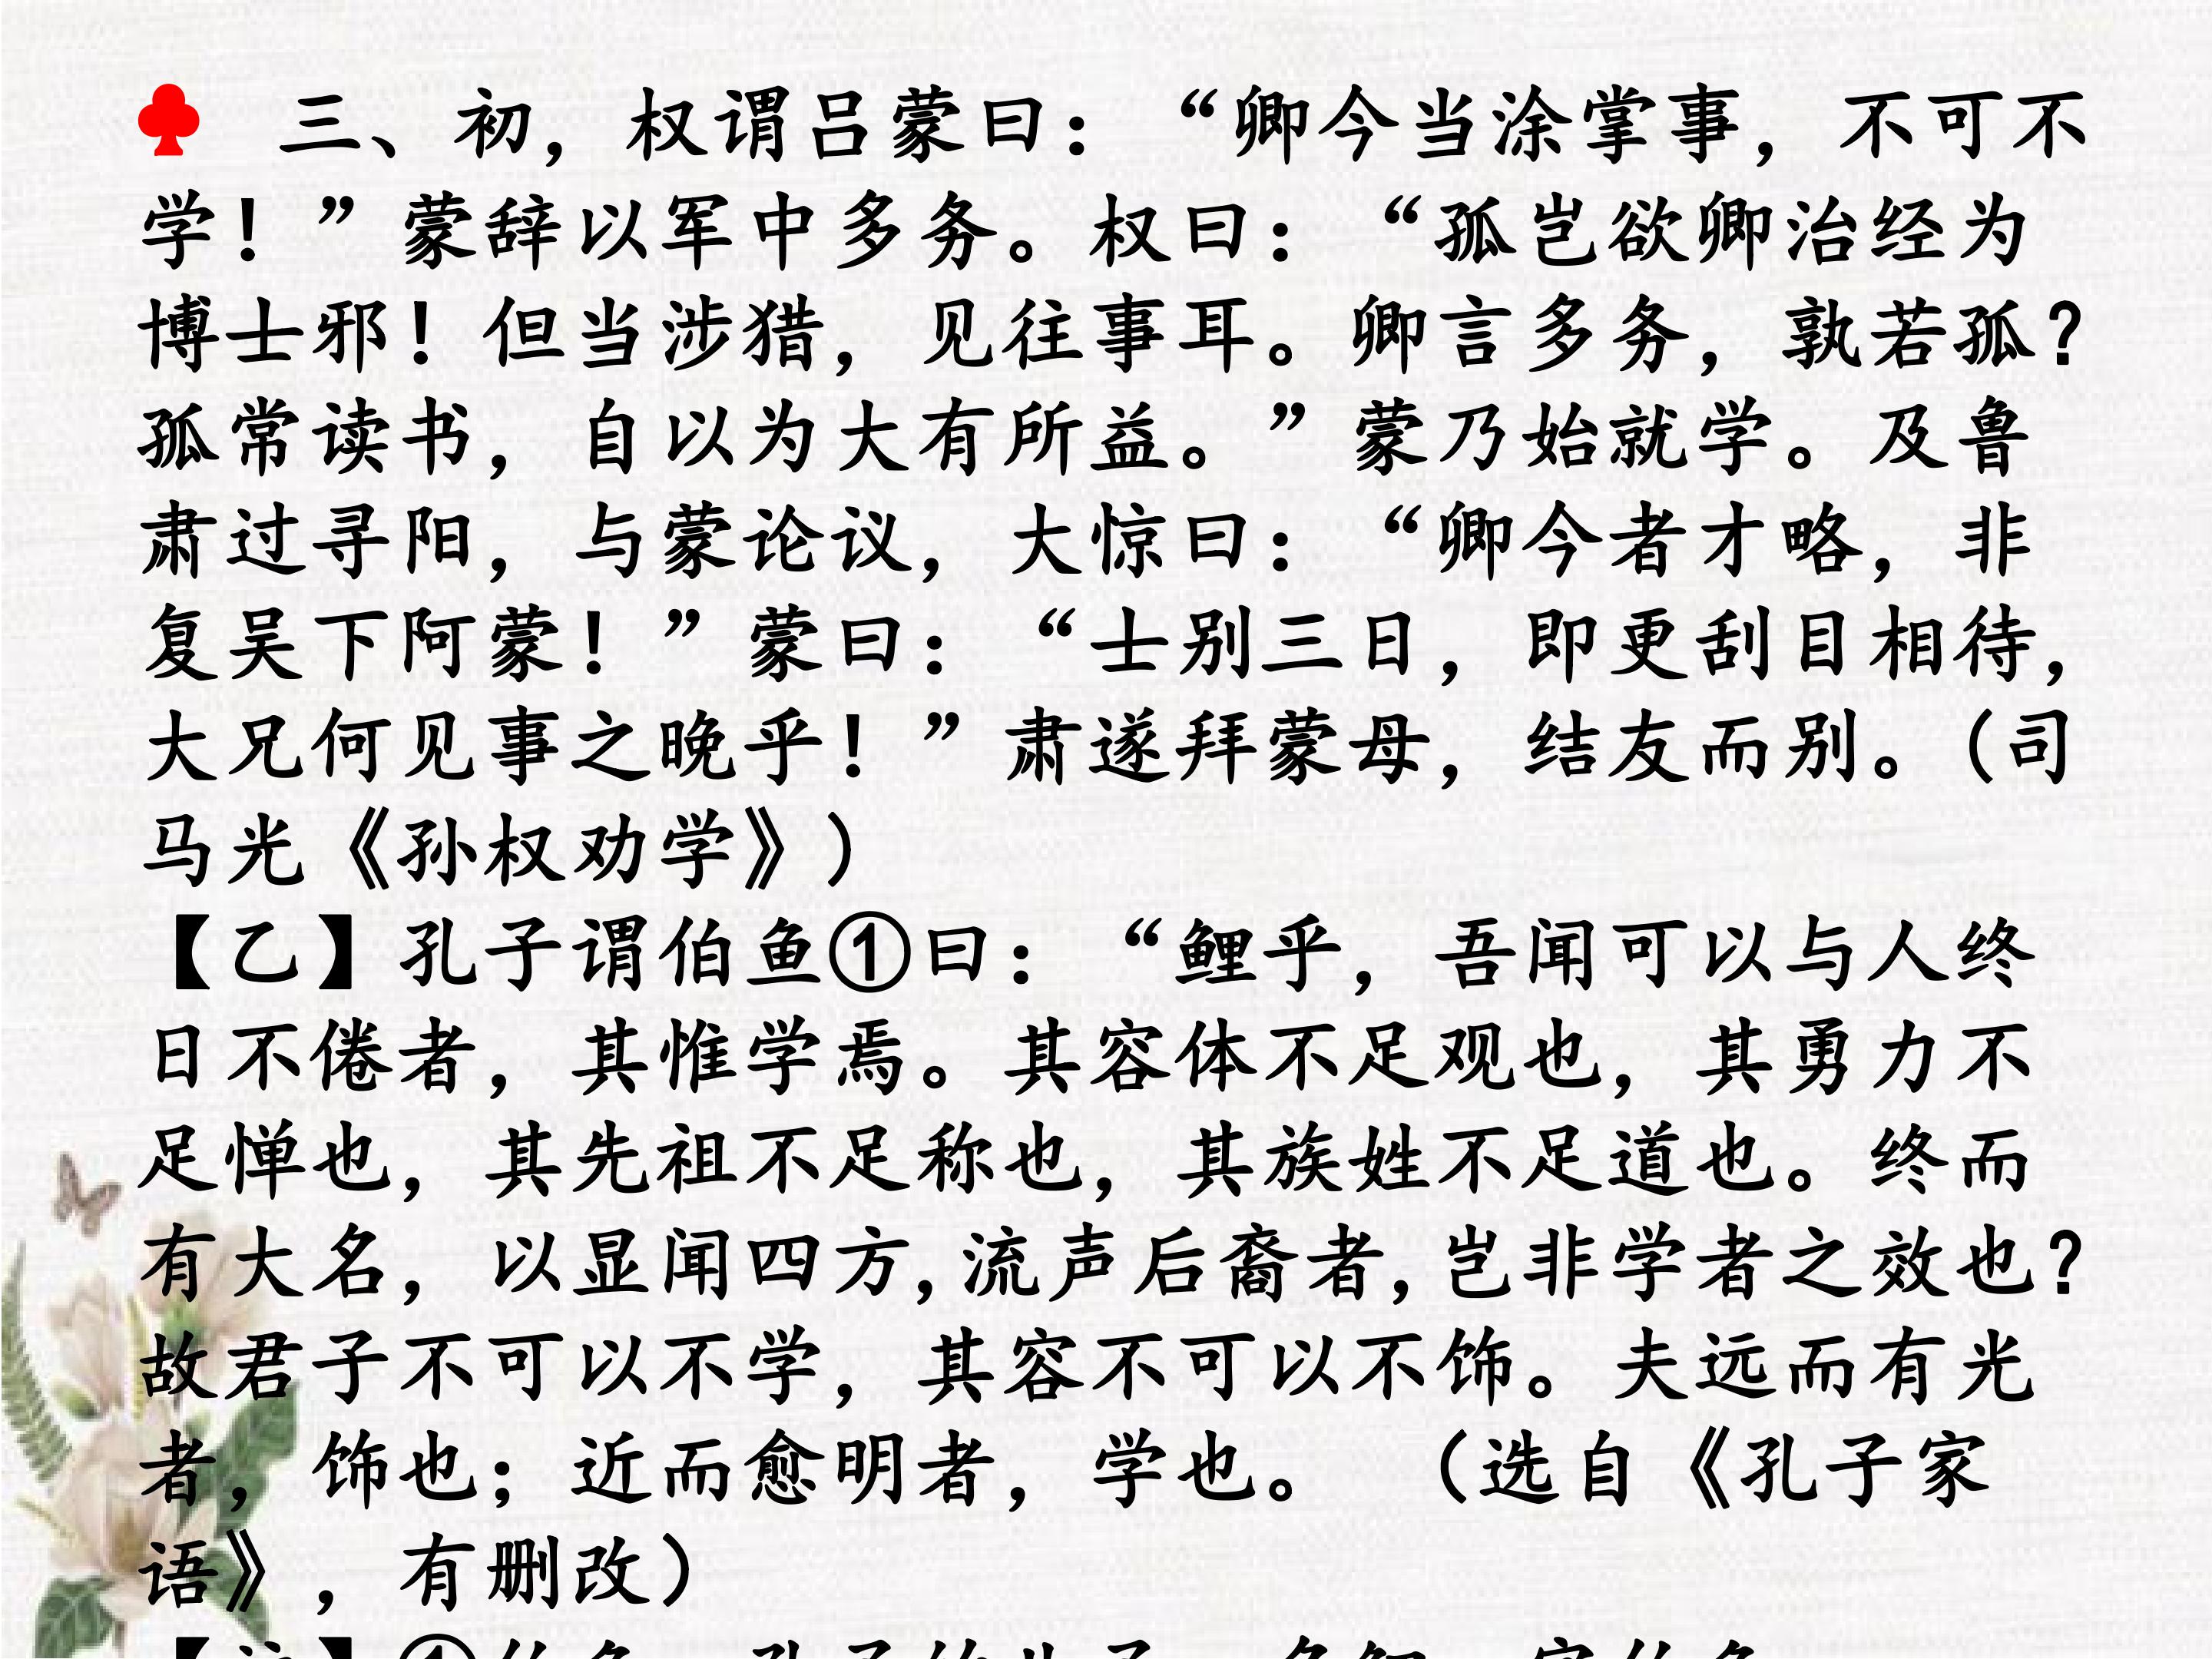 ♣ 三、初，权谓吕蒙曰：“卿今当涂掌事，不可不
学！”蒙辞以军中多务。权曰：“孤岂欲卿治经为
博士邪！但当涉猎，见往事耳。卿言多务，孰若孤？
孤常读书，自以为大有所益。”蒙乃始就学。及鲁
肃过寻阳，与蒙论议，大惊曰：“卿今者才略，非
复吴下阿蒙！”蒙曰：“士别三日，即更刮目相待，
大兄何见事之晚乎！”肃遂拜蒙母，结友而别。（司
马光《孙权劝学》）
【乙】孔子谓伯鱼①曰：“鲤乎，吾闻可以与人终
日不倦者，其惟学焉。其容体不足观也，其勇力不
足惮也，其先祖不足称也，其族姓不足道也。终而
有大名，以显闻四方,流声后裔者,岂非学者之效也？
故君子不可以不学，其容不可以不饰。夫远而有光
者，饰也；近而愈明者，学也。 （选自《孔子家
语》，有删改）